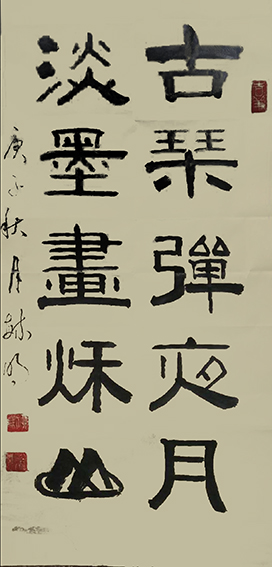 古琹彈夜月
淡墨畫秌山
庚子秋月